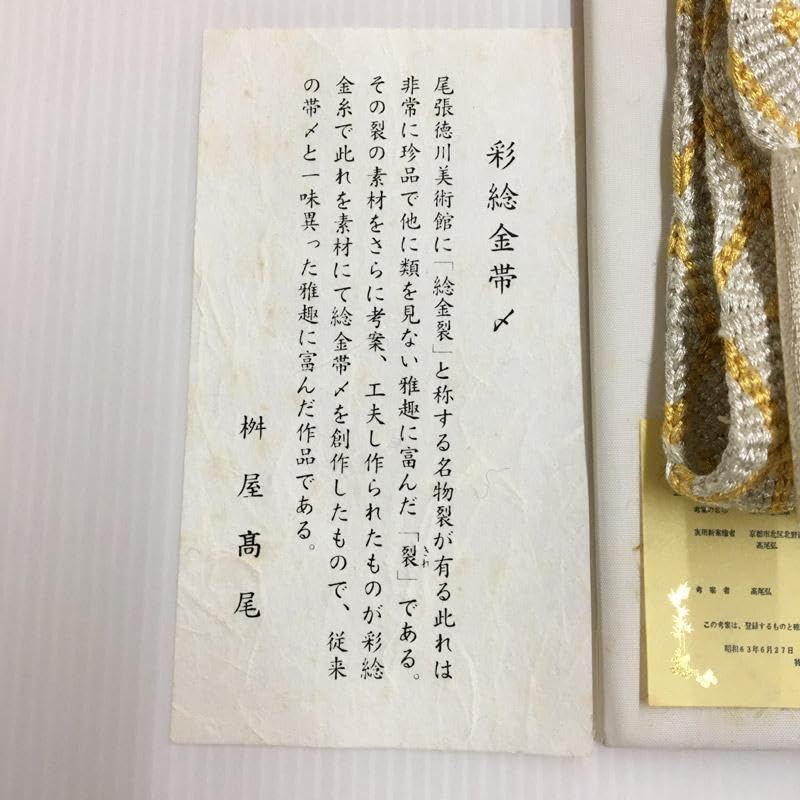 彩綛金帯〆
尾張徳川美術館に「綛金裂」と称する名物裂が有る此れは
非常に珍品で他に類を見ない雅趣に富んだ「裂」である。
きれ
その裂の素材をさらに考案、工夫し作られたものが彩綛
金糸で此れを素材にて綛金帯〆を創作したもので、従来
の帯〆と一味異った雅趣に富んだ作品である。
桝屋髙尾
考案の名称
実用新案権者 京都市北区北野
高尾弘
考案者 高尾弘
この考案は、登録するものと確
昭和63年6月27日
特